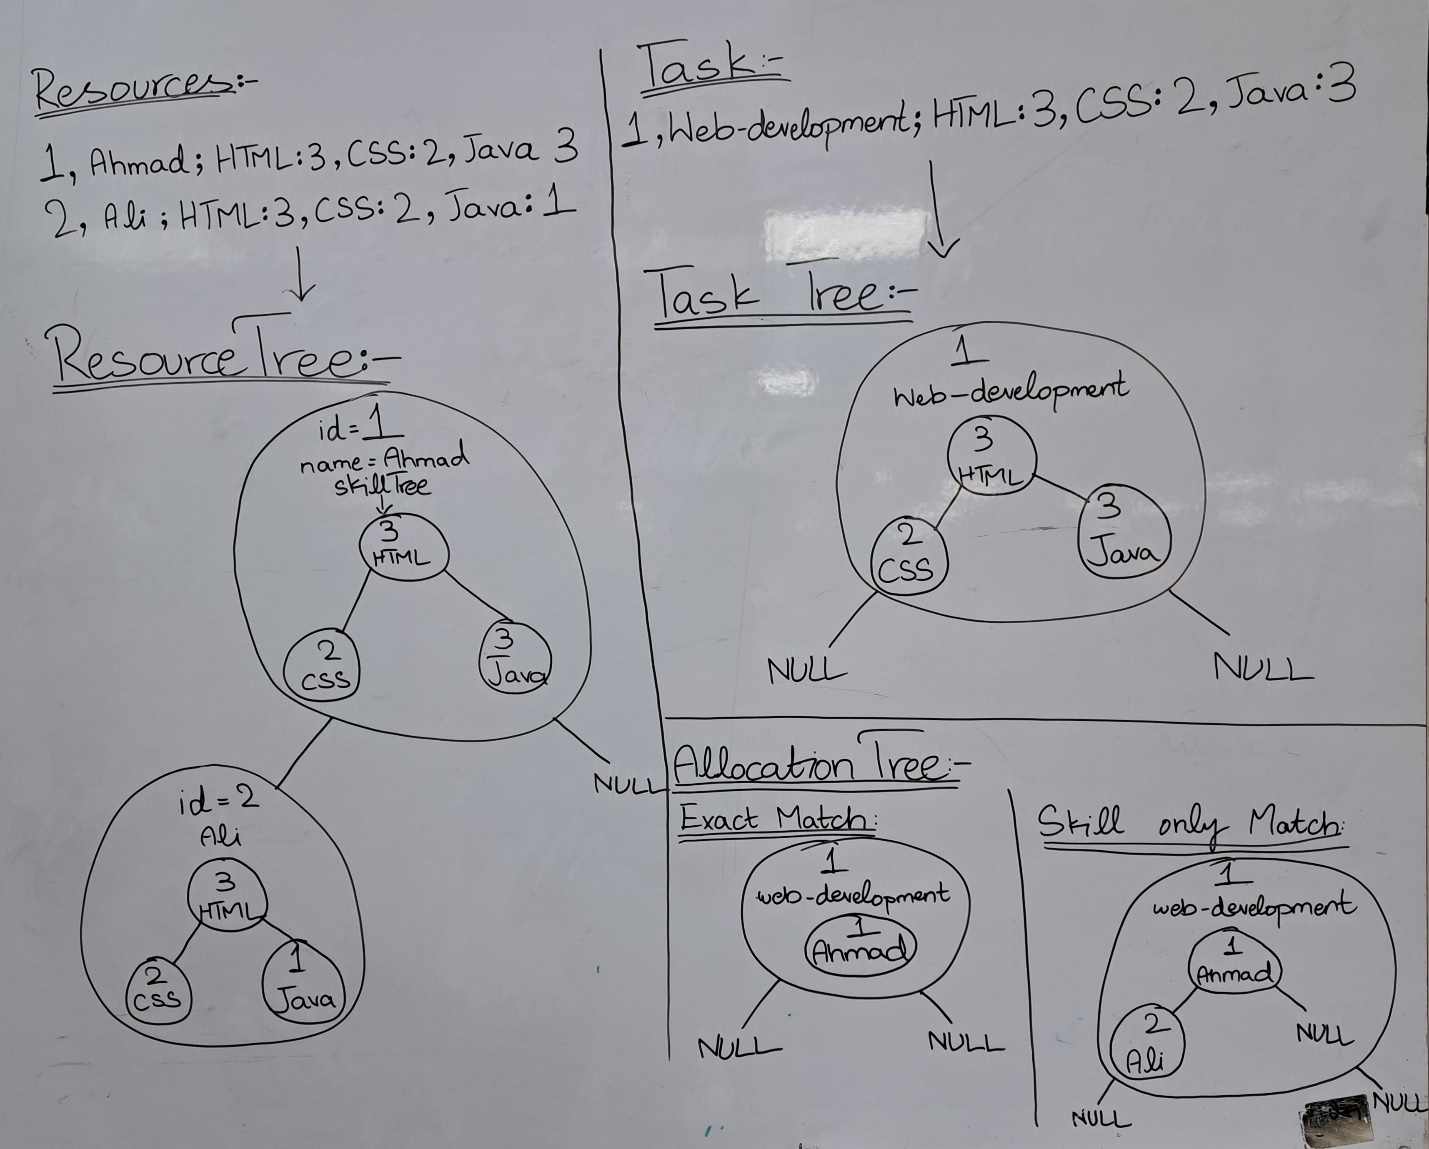 Resources:-
1, Ahmad; HTML:3, CSS:2, Java 3
2, Ali; HTML:3, CSS:2, Java:1
Resource Tree:-
id=1
name=Ahmad
skillTree
3
HTML
2
CSS
3
Java
NULL
id=2
Ali
3
HTML
2
CSS
1
Java
Task:-
1, Web-development; HTML:3, CSS:2, Java:3
Task Tree:-
1
Web-development
3
HTML
2
CSS
3
Java
NULL
NULL
Allocation Tree:-
Exact Match:
1
web-development
1
Ahmad
NULL
NULL
Skill only Match:
1
web-development
1
Ahmad
2
Ali
NULL
NULL
NULL